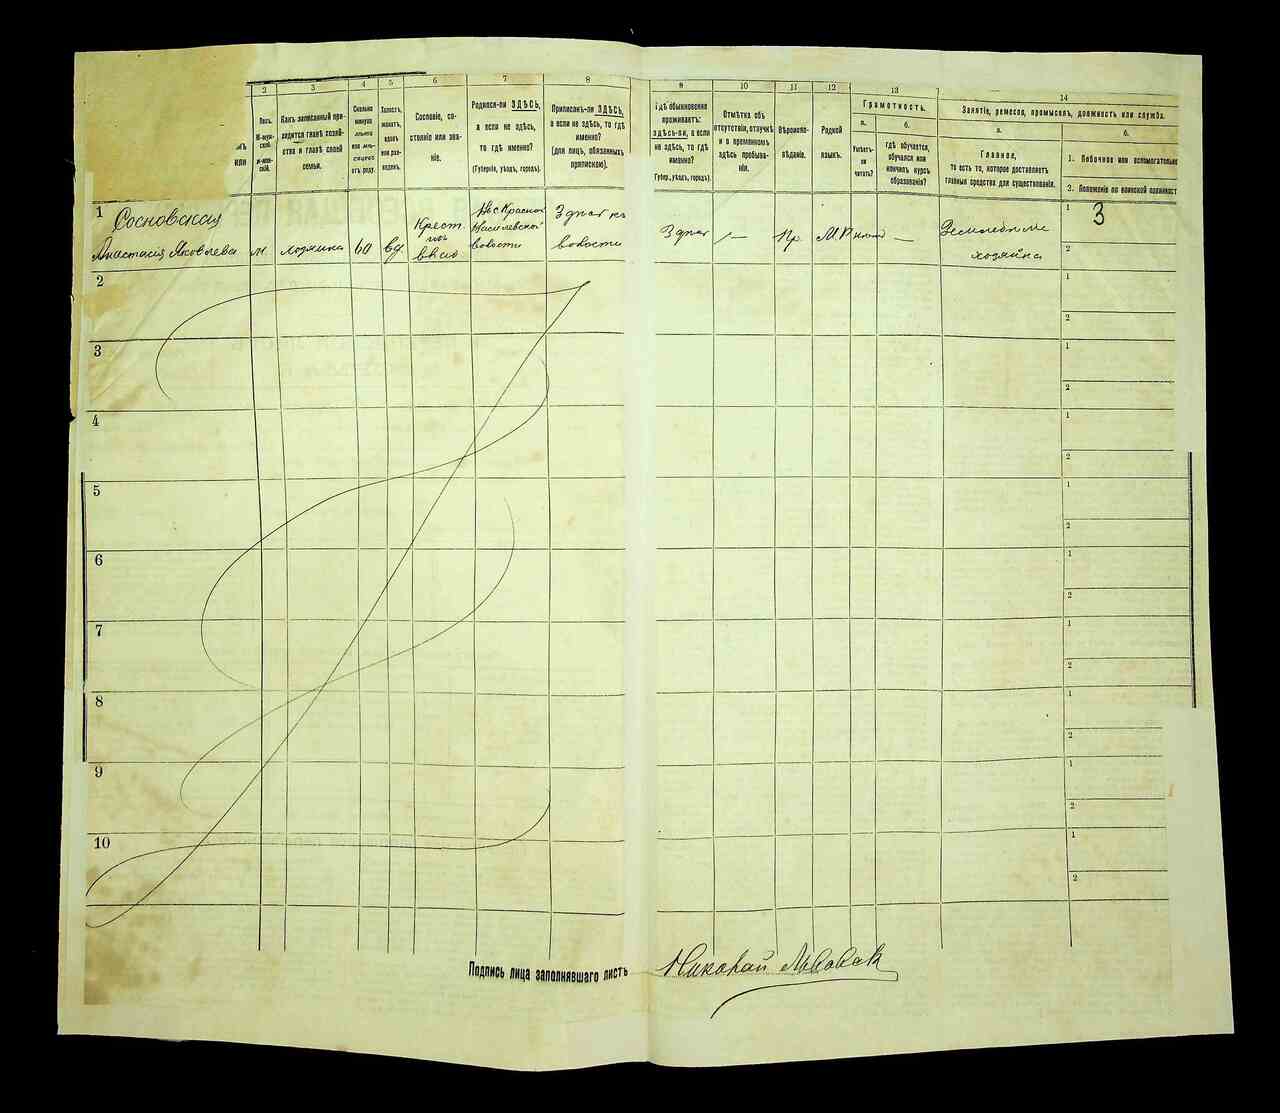 2 3 4 5 6 7 8 9 10 11 12 13 14
или
Полъ.
М-муж-
ской.
ж-жен-
скій.
Какъ записанный при-
ходится главѣ хозяй-
ства и главѣ своей
семьи.
Сколько
минуло
лѣтъ
или мѣ-
сяцевъ
отъ роду.
Холостъ,
женатъ,
вдовъ
или раз-
веденъ.
Сословіе, со-
стояніе или зва-
ніе.
Родился-ли ЗДѢСЬ,
а если не здѣсь,
то гдѣ именно?
(Губернія, уѣздъ, городъ).
Приписанъ-ли ЗДѢСЬ,
а если не здѣсь, то гдѣ
именно?
(для лицъ, обязанныхъ
припискою).
Гдѣ обыкновенно
проживаетъ:
здѣсь-ли, а если
не здѣсь, то гдѣ
именно?
(Губер., уѣздъ, городъ).
Отмѣтка объ
отсутствіи, отлучкѣ
и о временномъ
здѣсь пребыва-
ніи.
Вѣроиспо-
вѣданіе.
Родной
языкъ.
Грамотность.
а.
Умѣетъ-
ли
читать?
б.
гдѣ обучается,
обучался или
кончилъ курсъ
образованія?
Занятіе, ремесло, промыселъ, должность или служба.
а.
Главное,
то есть то, которое доставляетъ
главныя средства для существованія.
б.
1. Побочное или вспомогательное
2. Положеніе по воинской повинност
1 Сосновская
Анастасія Яковлева
ж. хозяйка 60 вд.
Крест.
Васи левской
волости
волости
Пр. М.Р. —
хозяйка
1 3
2
2 1
2
3 1
2
4 1
2
5 1
2
6 1
2
7 1
2
8 1
2
9 1
2
10 1
2
Подпись лица заполнявшаго листъ Николай